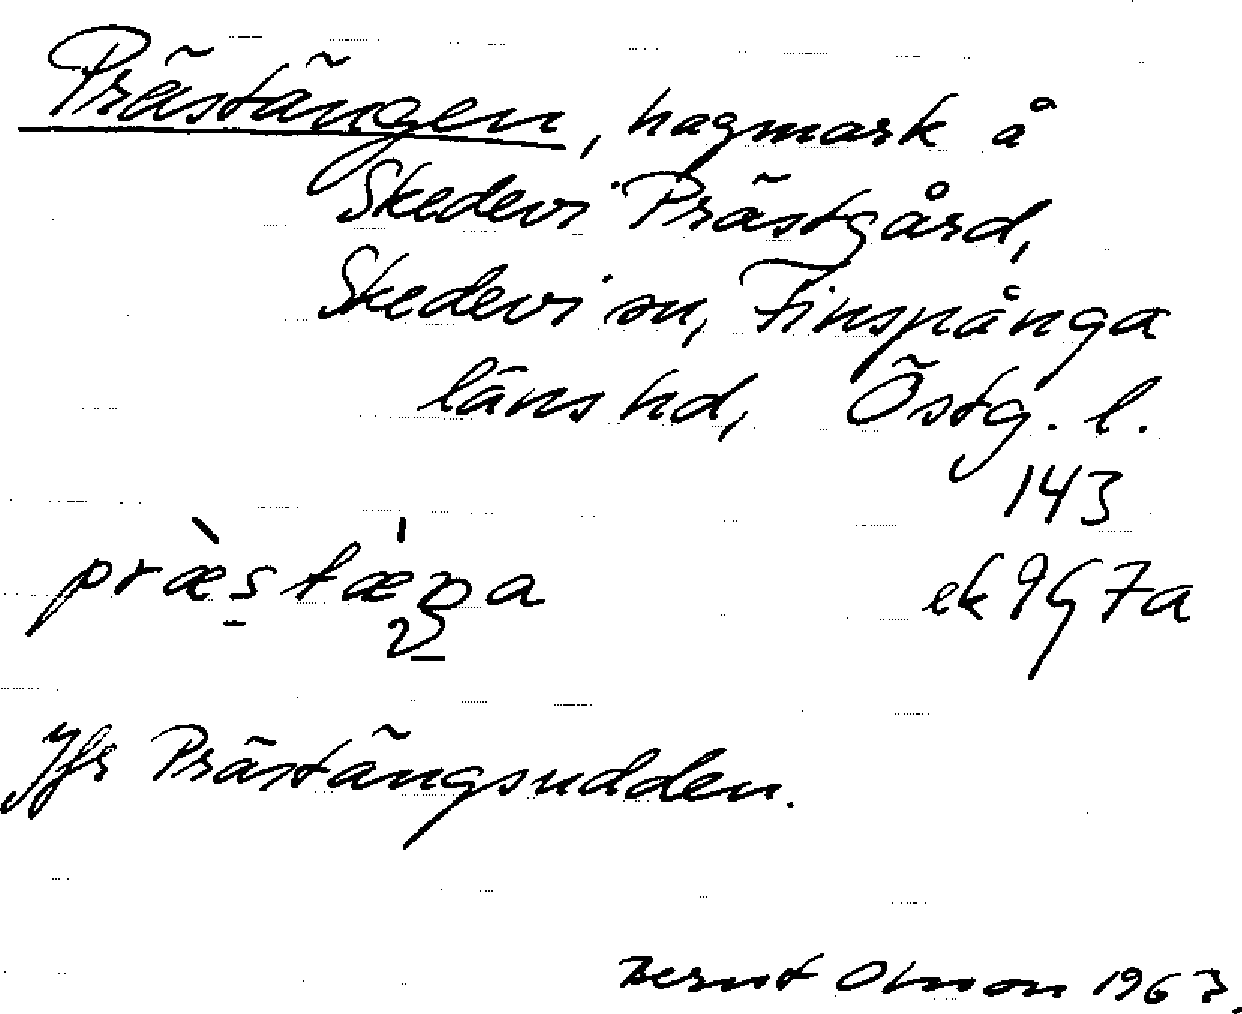 Prästängen, hagmark å
Skedevi Prästgård,
Skedevi sn, Finspånga
läns hd, Östg. l.
143
præ̀stæ̍ŋa ek 9G7a
Jfr Prästängsudden.
Bernt Olsson 1963.